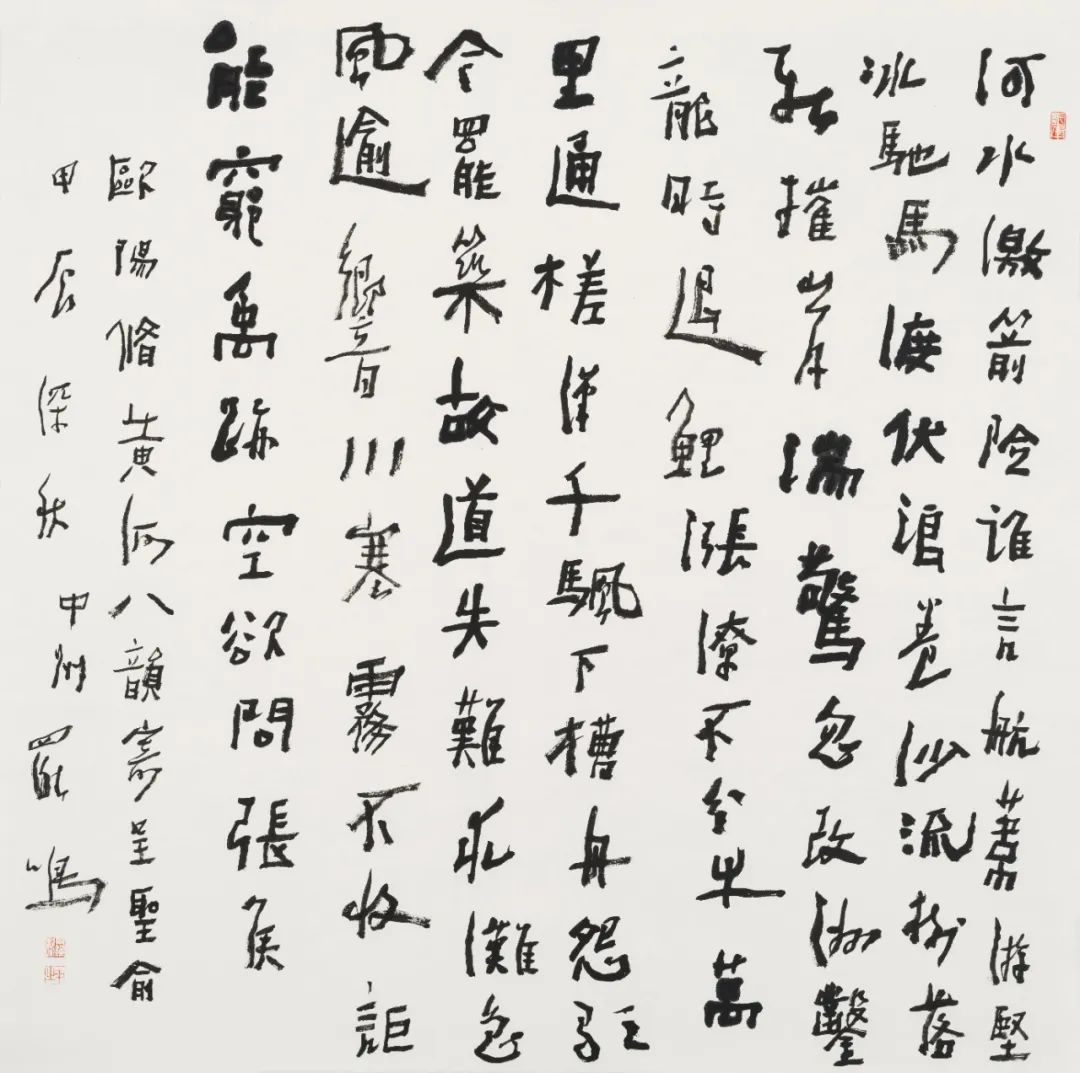 河水激箭險誰言航葦游堅
冰馳馬渡伏浪卷沙流樹落
新摧岸湍驚忽改洲鑿
龍時退鯉漲潦不分牛萬
里通槎漢千颿下槽舟怨
今罷築故道失難求灘急
風逾響川寒霧不收詎
能窮禹跡空欲問張侯
歐陽脩黃河八韻寄呈聖俞
甲辰深秋 中州羅鳴